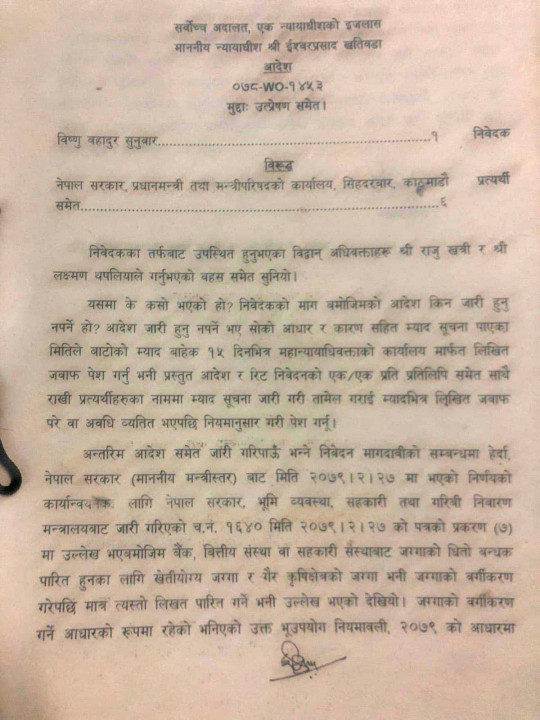 सर्वोच्च अदालत, एक न्यायाधीशको इजलास
माननीय न्यायाधीश श्री ईश्वरप्रसाद खतिवडा
आदेश
०७८-WO-१४५३
मुद्दाः उत्प्रेषण समेत।
विष्णु बहादुर सुनुवार...........................................................१ निवेदक
विरूद्ध
नेपाल सरकार, प्रधानमन्त्री तथा मन्त्रीपरिषदको कार्यालय, सिंहदरबार, काठमाडौं प्रत्यर्थी
समेत.......................................................................६
निवेदकका तर्फबाट उपस्थित हुनुभएका विद्वान् अधिवक्ताहरू श्री राजु खत्री र श्री
लक्ष्मण थपलियाले गर्नुभएको बहस समेत सुनियो।
यसमा के कसो भएको हो? निवेदकको माग बमोजिमको आदेश किन जारी हुनु
नपर्ने हो? आदेश जारी हुनु नपर्ने भए सोको आधार र कारण सहित म्याद सूचना पाएका
मितिले बाटोको म्याद बाहेक १५ दिनभित्र महान्यायाधिवक्ताको कार्यालय मार्फत लिखित
जवाफ पेश गर्नु भनी प्रस्तुत आदेश र रिट निवेदनको एक/एक प्रति प्रतिलिपि समेत साथै
राखी प्रत्यर्थीहरुका नाममा म्याद सूचना जारी गरी तामेल गराई म्यादभित्र लिखित जवाफ
परे वा अवधि व्यतित भएपछि नियमानुसार गरी पेश गर्नू।
अन्तरिम आदेश समेत जारी गरिपाऊँ भन्ने निवेदन मागदावीको सम्बन्धमा हेर्दा,
नेपाल सरकार (माननीय मन्त्रीस्तर) बाट मिति २०७९।२।२७ मा भएको निर्णयको
लागि नेपाल सरकार, भूमि व्यवस्था, सहकारी तथा गरिवी निवारण
मन्त्रालयबाट जारी गरिएको च.नं. १६४० मिति २०७९।२।२७ को पत्रको प्रकरण (७)
मा उल्लेख भएबमोजिम बैंक, वित्तीय संस्था वा सहकारी संस्थाबाट जग्गाको धितो बन्धक
पारित हुनका लागि खेतीयोग्य जग्गा र गैर कृषिक्षेत्रको जग्गा भनी जग्गाको वर्गीकरण
गरेपछि मात्र त्यस्तो लिखत पारित गर्ने भनी उल्लेख भएको देखियो। जग्गाको वर्गीकरण
गर्ने आधारको रूपमा रहेको भनिएको उक्त भूउपयोग नियमावली, २०७९ को आधारमा